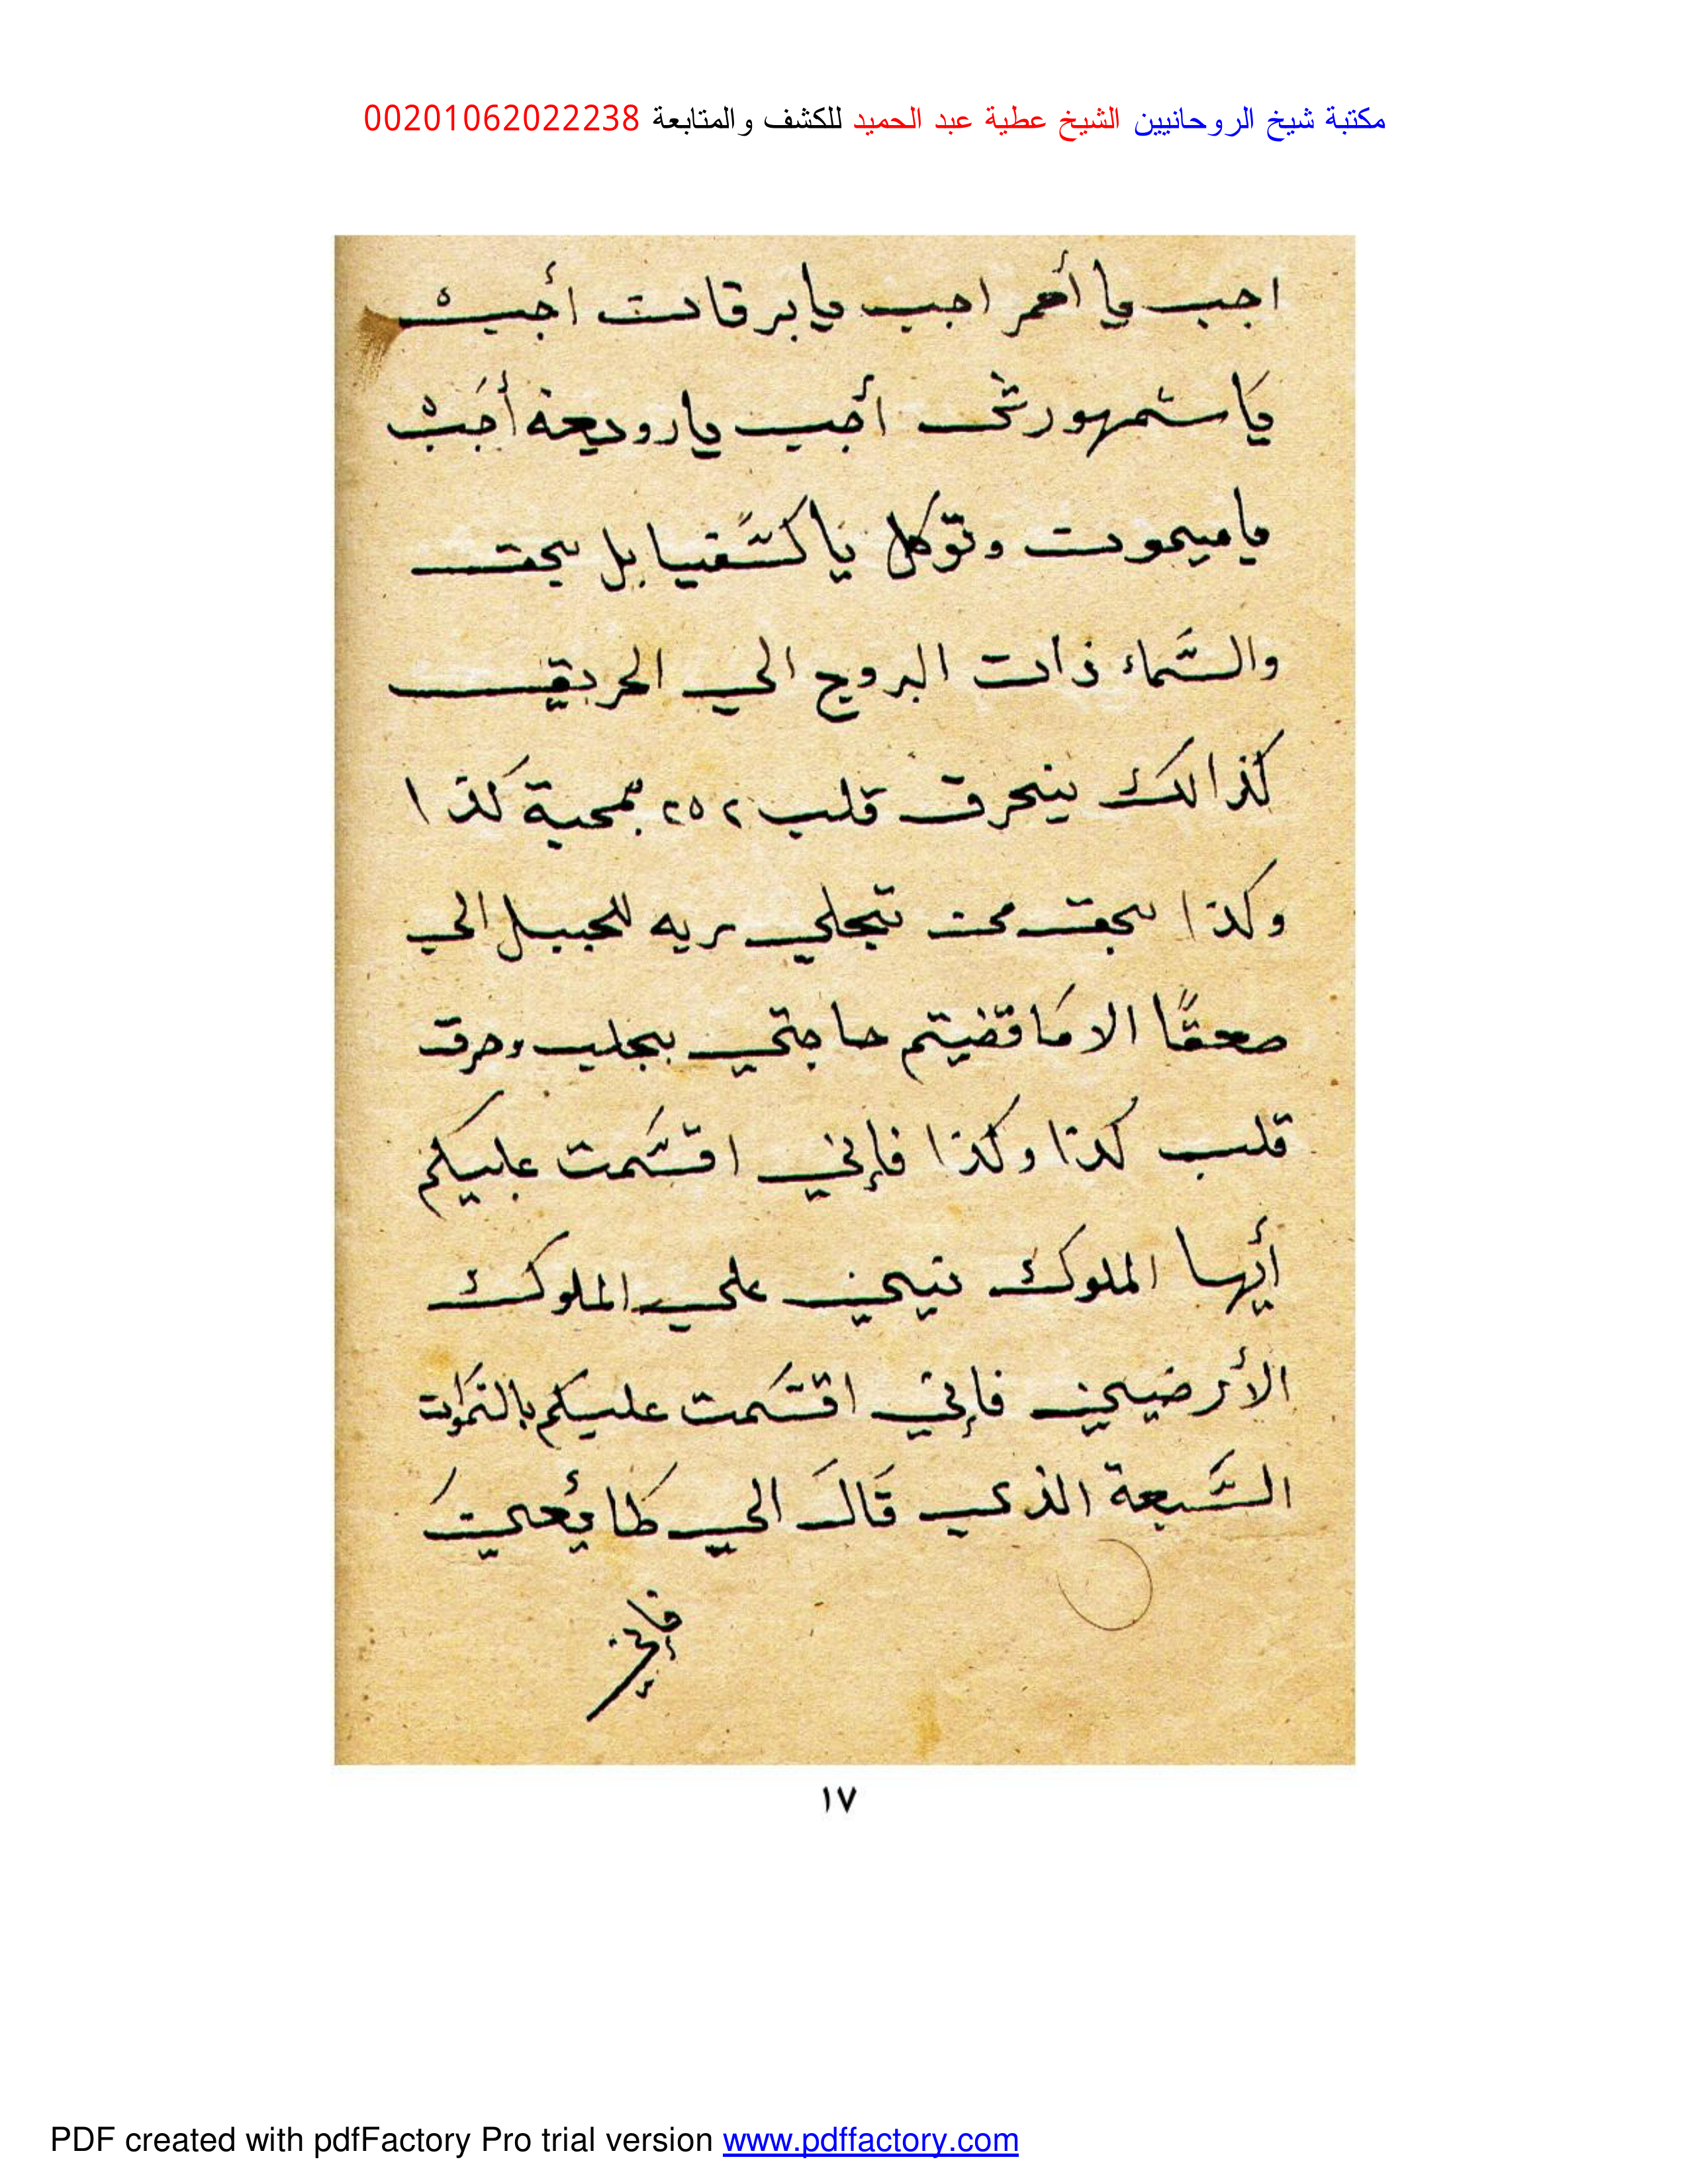 مكتبة شيخ الروحانيين الشيخ عطية عبد الحميد للكشف والمتابعة 00201062022238
اجب يا أحمر اجب يا برقان أجب
يا شمهورش أجب يا روديعة أجب
يا ميمون وتوكل يا كشفيابل بحق
والسماء ذات البروج الي الحريق
كذالك ينحرق قلب ٢٥٢ بمحبة كذا
وكذا بحق من تجلي ربه للجبل الي
صعقًا الا ما قضيتم حاجتي بجلب وحرق
قلب كذا وكذا فإني اقسمت عليكم
أيها الملوك علي الملوك
الأرضين فإني اقسمت عليكم بالسموات
السبعة الذي قال الي طائعين
فإني
١٧
PDF created with pdfFactory Pro trial version www.pdffactory.com